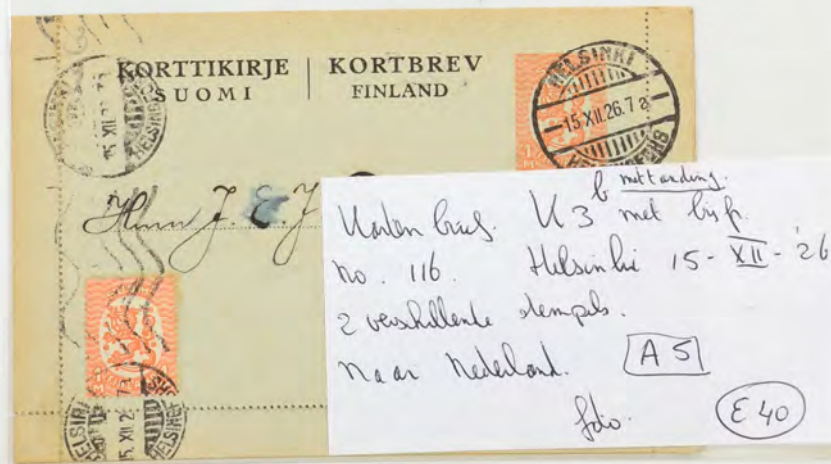 KORTTIKIRJE | KORTBREV
SUOMI FINLAND
HELSINKI
15.XII.26.7
HELSINGFORS
Herrn J. E. J
15. XII. 2
HELSINKI
K3b met randing.
met bijfr.
no. 116. Helsinki 15-XII-'26
2 verschillende stempels.
naar Nederland. A5
fdio.
E 40